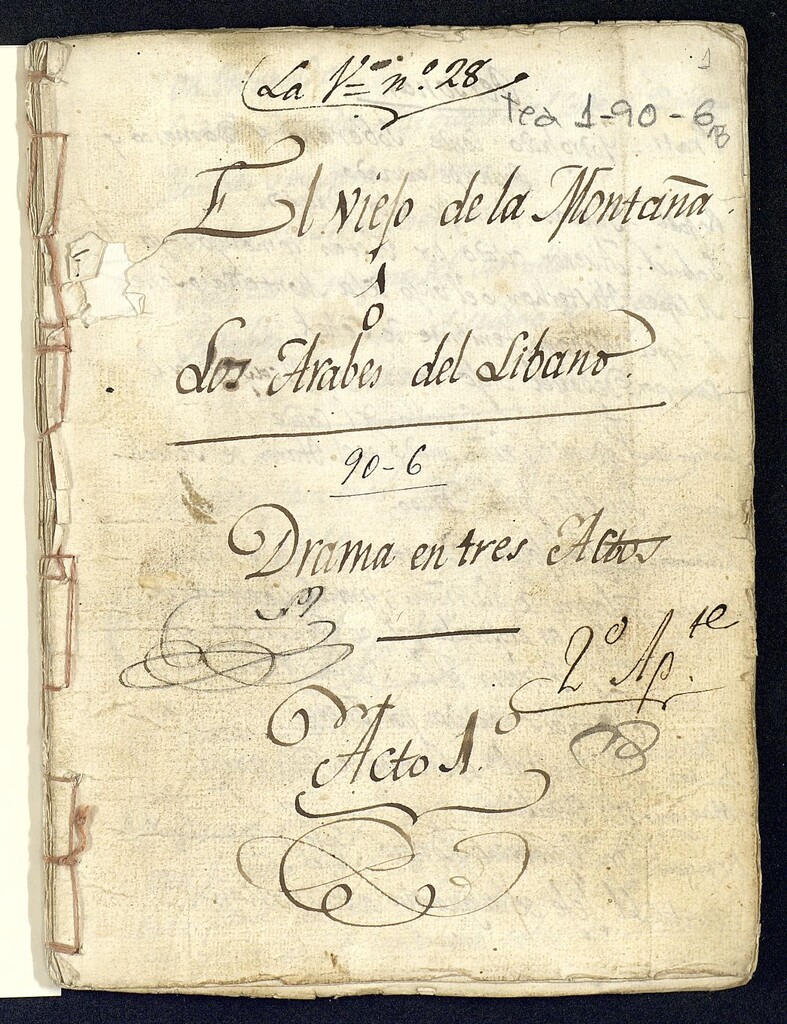 La V.ª n.º 28
1
tea 1-90-6 B
El viejo de la Montaña.
ó
Los Arabes del Libano.
90-6
Drama en tres Actos
2º Ap.te
Acto 1.º